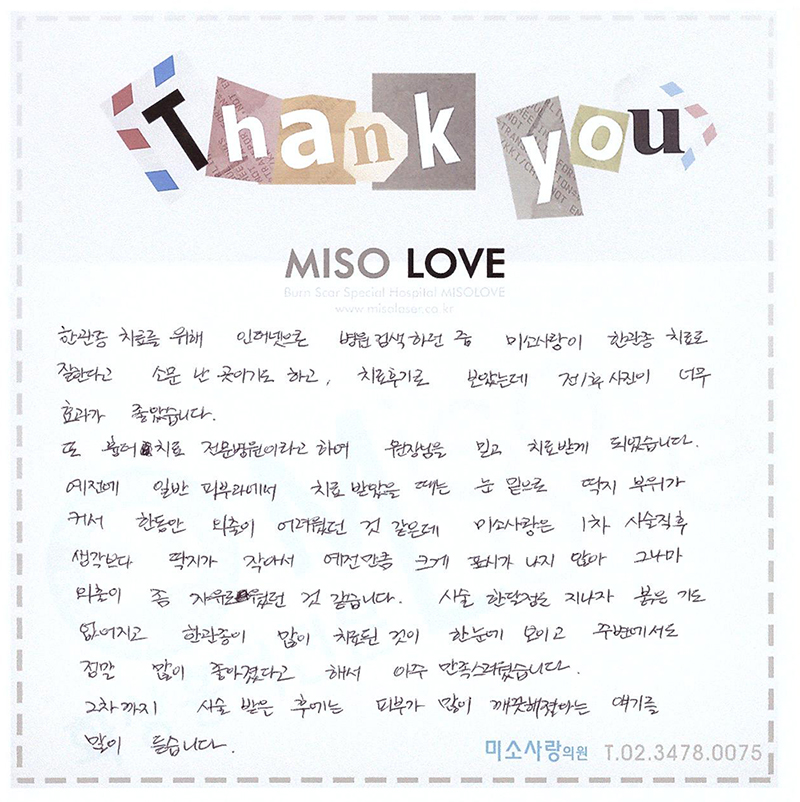 Thank you
MISO LOVE
Burn Scar Special Hospital MISOLOVE
www.misolaser.co.kr
한관종 치료를 위해 인터넷으로 병원 검색하던 중 미소사랑이 한관종 치료로
잘한다고 소문 난 곳이기도 하고, 치료후기로 보았는데 전/후 사진이 너무
효과가 좋았습니다.
또 흉터 치료 전문병원이라고 하여 원장님을 믿고 치료받게 되었습니다.
예전에 일반 피부과에서 치료 받았을 때는 눈 밑으로 딱지 부위가
커서 한동안 외출이 어려웠던 것 같은데 미소사랑은 1차 시술직후
생각보다 딱지가 작아서 예전만큼 크게 표시가 나지 않아 그나마
외출이 좀 자유로웠던 것 같습니다. 시술 한달정을 지나자 붉은 기도
없어지고 한관종이 많이 치료된 것이 한눈에 보이고 주변에서도
정말 많이 좋아졌다고 해서 아주 만족스러웠습니다.
2차까지 시술 받은 후에는 피부가 많이 깨끗해졌다는 얘기를
많이 듣습니다.
미소사랑의원 T.02.3478.0075